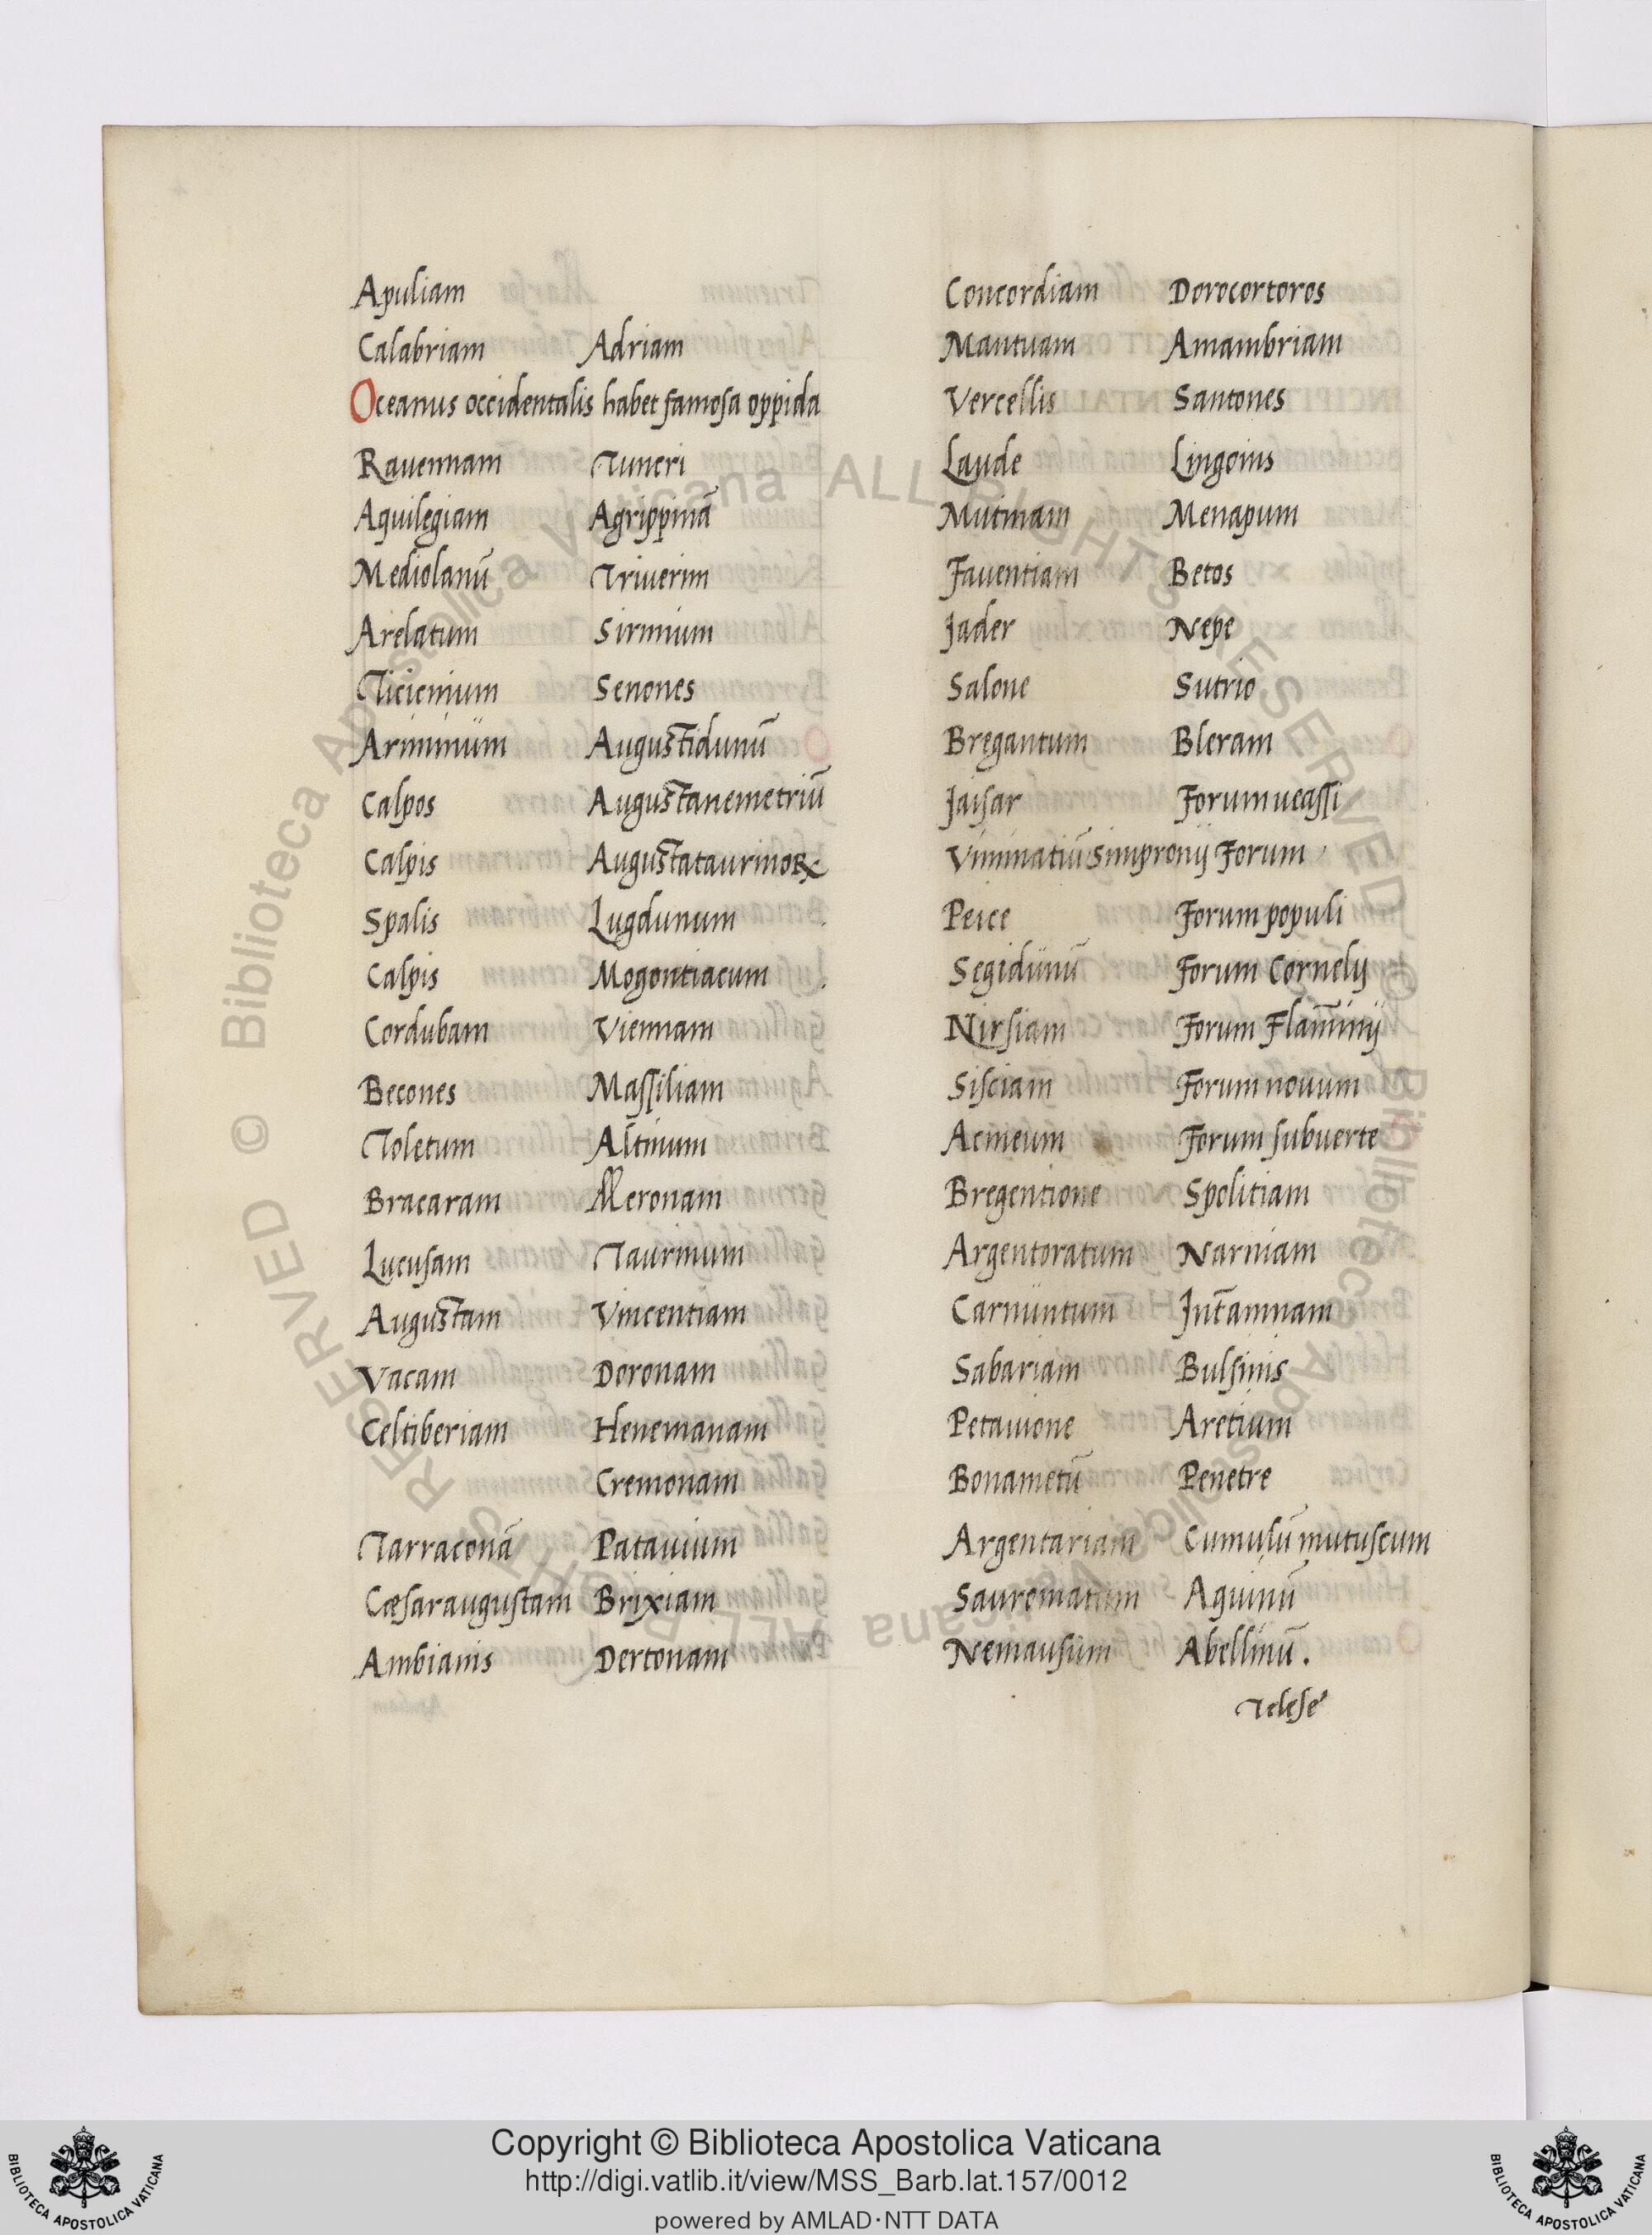 Apuliam
Calabriam Adriam
Oceanus occidentalis habet famosa oppida
Ravennam Tuneri
Aquilegiam Agrippinā
Mediolanū Triverim
Arelatum Sirmium
Ticienium Senones
Ariminum Augustidunū
Calpos Augustanemetriū
Calpis Augustataurinoꝝ
Spalis Lugdunum
Calpis Mogontiacum
Cordubam Viennam
Becones Massiliam
Toletum Altinum
Bracaram Meronam
Lucusam Taurinum
Augustam Vincentiam
Vacam Doronam
Celtiberiam Henemanam
Cremonam
Tarraconā Patavium
Cæsaraugustam Brixiam
Ambianis Dertonam
Concordiam Dorocortoros
Mantuam Amambriam
Vercellis Santones
Laude Lingonis
Mutinam Menapum
Faventiam Betos
Jader Nepe
Salone Sutrio
Bregantum Bleram
Jaisar Forum ueassi
Viminatiū simpronij Forum
Peice Forum populi
Segidunū Forum Cornelij
Nirsiam Forum Flam̄inij
Sisciam Forum novum
Acineum Forum subuerte
Bregentione Spolitiam
Argentoratum Narniam
Carnuntum Jntamnam
Sabariam Bulsinis
Petavione Aretium
Bonametū Penetre
Argentariam Cumulū mutuscum
Sauromatum Aquinū
Nemausum Abellinū.
Telese
© Biblioteca Apostolica Vaticana ALL RIGHTS RESERVED © Biblioteca Apostolica Vaticana ALL RIGHTS RESERVED
Copyright © Biblioteca Apostolica Vaticana
http://digi.vatlib.it/view/MSS_Barb.lat.157/0012
powered by AMLAD·NTT DATA
BIBLIOTECA APOSTOLICA VATICANA
BIBLIOTECA APOSTOLICA VATICANA